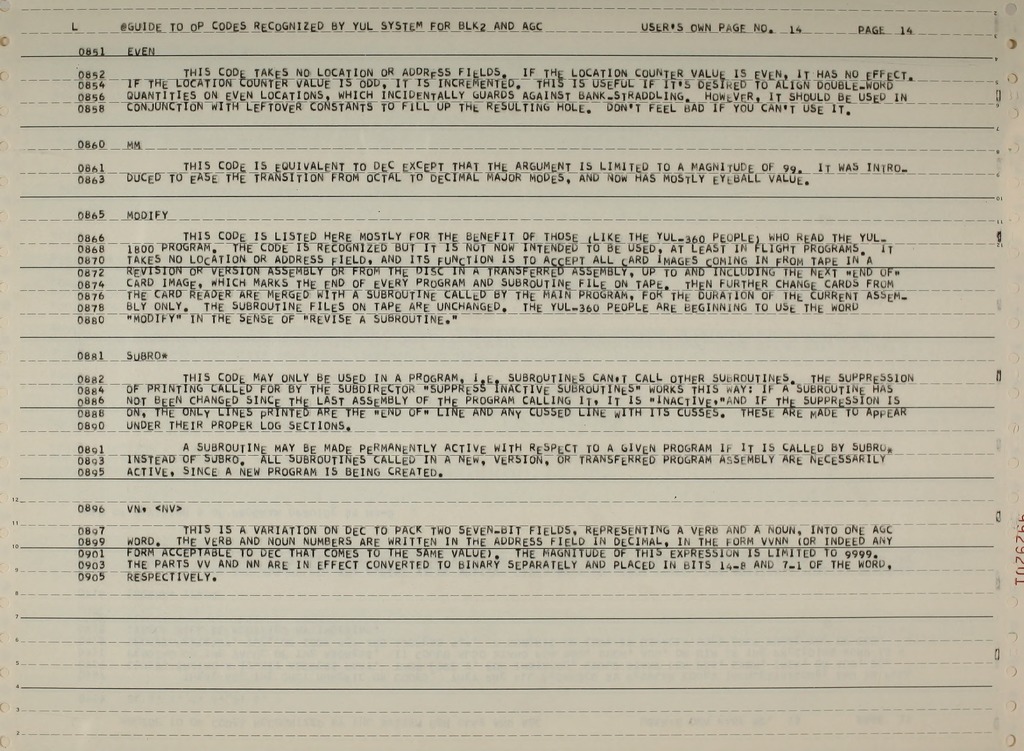 L @GUIDE TO OP CODES RECOGNIZED BY YUL SYSTEM FOR BLK2 AND AGC USER'S OWN PAGE NO. 14 PAGE 14
0851 EVEN
0852 THIS CODE TAKES NO LOCATION OR ADDRESS FIELDS. IF THE LOCATION COUNTER VALUE IS EVEN, IT HAS NO EFFECT.
0854 IF THE LOCATION COUNTER VALUE IS ODD, IT IS INCREMENTED. THIS IS USEFUL IF IT'S DESIRED TO ALIGN DOUBLE-WORD
0856 QUANTITIES ON EVEN LOCATIONS, WHICH INCIDENTALLY GUARDS AGAINST BANK-STRADDLING. HOWEVER, IT SHOULD BE USED IN
0858 CONJUNCTION WITH LEFTOVER CONSTANTS TO FILL UP THE RESULTING HOLE. DON'T FEEL BAD IF YOU CAN'T USE IT.
0860 MM
0861 THIS CODE IS EQUIVALENT TO DEC EXCEPT THAT THE ARGUMENT IS LIMITED TO A MAGNITUDE OF 99. IT WAS INTRO-
0863 DUCED TO EASE THE TRANSITION FROM OCTAL TO DECIMAL MAJOR MODES, AND NOW HAS MOSTLY EYEBALL VALUE.
0865 MODIFY
0866 THIS CODE IS LISTED HERE MOSTLY FOR THE BENEFIT OF THOSE (LIKE THE YUL-360 PEOPLE) WHO READ THE YUL-
0868 1800 PROGRAM. THE CODE IS RECOGNIZED BUT IT IS NOT NOW INTENDED TO BE USED, AT LEAST IN FLIGHT PROGRAMS. IT
0870 TAKES NO LOCATION OR ADDRESS FIELD, AND ITS FUNCTION IS TO ACCEPT ALL CARD IMAGES COMING IN FROM TAPE IN A
0872 REVISION OR VERSION ASSEMBLY OR FROM THE DISC IN A TRANSFERRED ASSEMBLY, UP TO AND INCLUDING THE NEXT "END OF"
0874 CARD IMAGE, WHICH MARKS THE END OF EVERY PROGRAM AND SUBROUTINE FILE ON TAPE. THEN FURTHER CHANGE CARDS FROM
0876 THE CARD READER ARE MERGED WITH A SUBROUTINE CALLED BY THE MAIN PROGRAM, FOR THE DURATION OF THE CURRENT ASSEM-
0878 BLY ONLY. THE SUBROUTINE FILES ON TAPE ARE UNCHANGED. THE YUL-360 PEOPLE ARE BEGINNING TO USE THE WORD
0880 "MODIFY" IN THE SENSE OF "REVISE A SUBROUTINE."
0881 SUBRO*
0882 THIS CODE MAY ONLY BE USED IN A PROGRAM, I.E. SUBROUTINES CAN'T CALL OTHER SUBROUTINES. THE SUPPRESSION
0884 OF PRINTING CALLED FOR BY THE SUBDIRECTOR "SUPPRESS INACTIVE SUBROUTINES" WORKS THIS WAY: IF A SUBROUTINE HAS
0886 NOT BEEN CHANGED SINCE THE LAST ASSEMBLY OF THE PROGRAM CALLING IT, IT IS "INACTIVE,"AND IF THE SUPPRESSION IS
0888 ON, THE ONLY LINES PRINTED ARE THE "END OF" LINE AND ANY CUSSED LINE WITH ITS CUSSES. THESE ARE MADE TO APPEAR
0890 UNDER THEIR PROPER LOG SECTIONS.
0891 A SUBROUTINE MAY BE MADE PERMANENTLY ACTIVE WITH RESPECT TO A GIVEN PROGRAM IF IT IS CALLED BY SUBRO*
0893 INSTEAD OF SUBRO. ALL SUBROUTINES CALLED IN A NEW, VERSION, OR TRANSFERRED PROGRAM ASSEMBLY ARE NECESSARILY
0895 ACTIVE, SINCE A NEW PROGRAM IS BEING CREATED.
0896 VN, <NV>
0897 THIS IS A VARIATION ON DEC TO PACK TWO SEVEN-BIT FIELDS, REPRESENTING A VERB AND A NOUN, INTO ONE AGC
0899 WORD. THE VERB AND NOUN NUMBERS ARE WRITTEN IN THE ADDRESS FIELD IN DECIMAL, IN THE FORM VVNN (OR INDEED ANY
0901 FORM ACCEPTABLE TO DEC THAT COMES TO THE SAME VALUE). THE MAGNITUDE OF THIS EXPRESSION IS LIMITED TO 9999.
0903 THE PARTS VV AND NN ARE IN EFFECT CONVERTED TO BINARY SEPARATELY AND PLACED IN BITS 14-8 AND 7-1 OF THE WORD,
0905 RESPECTIVELY.